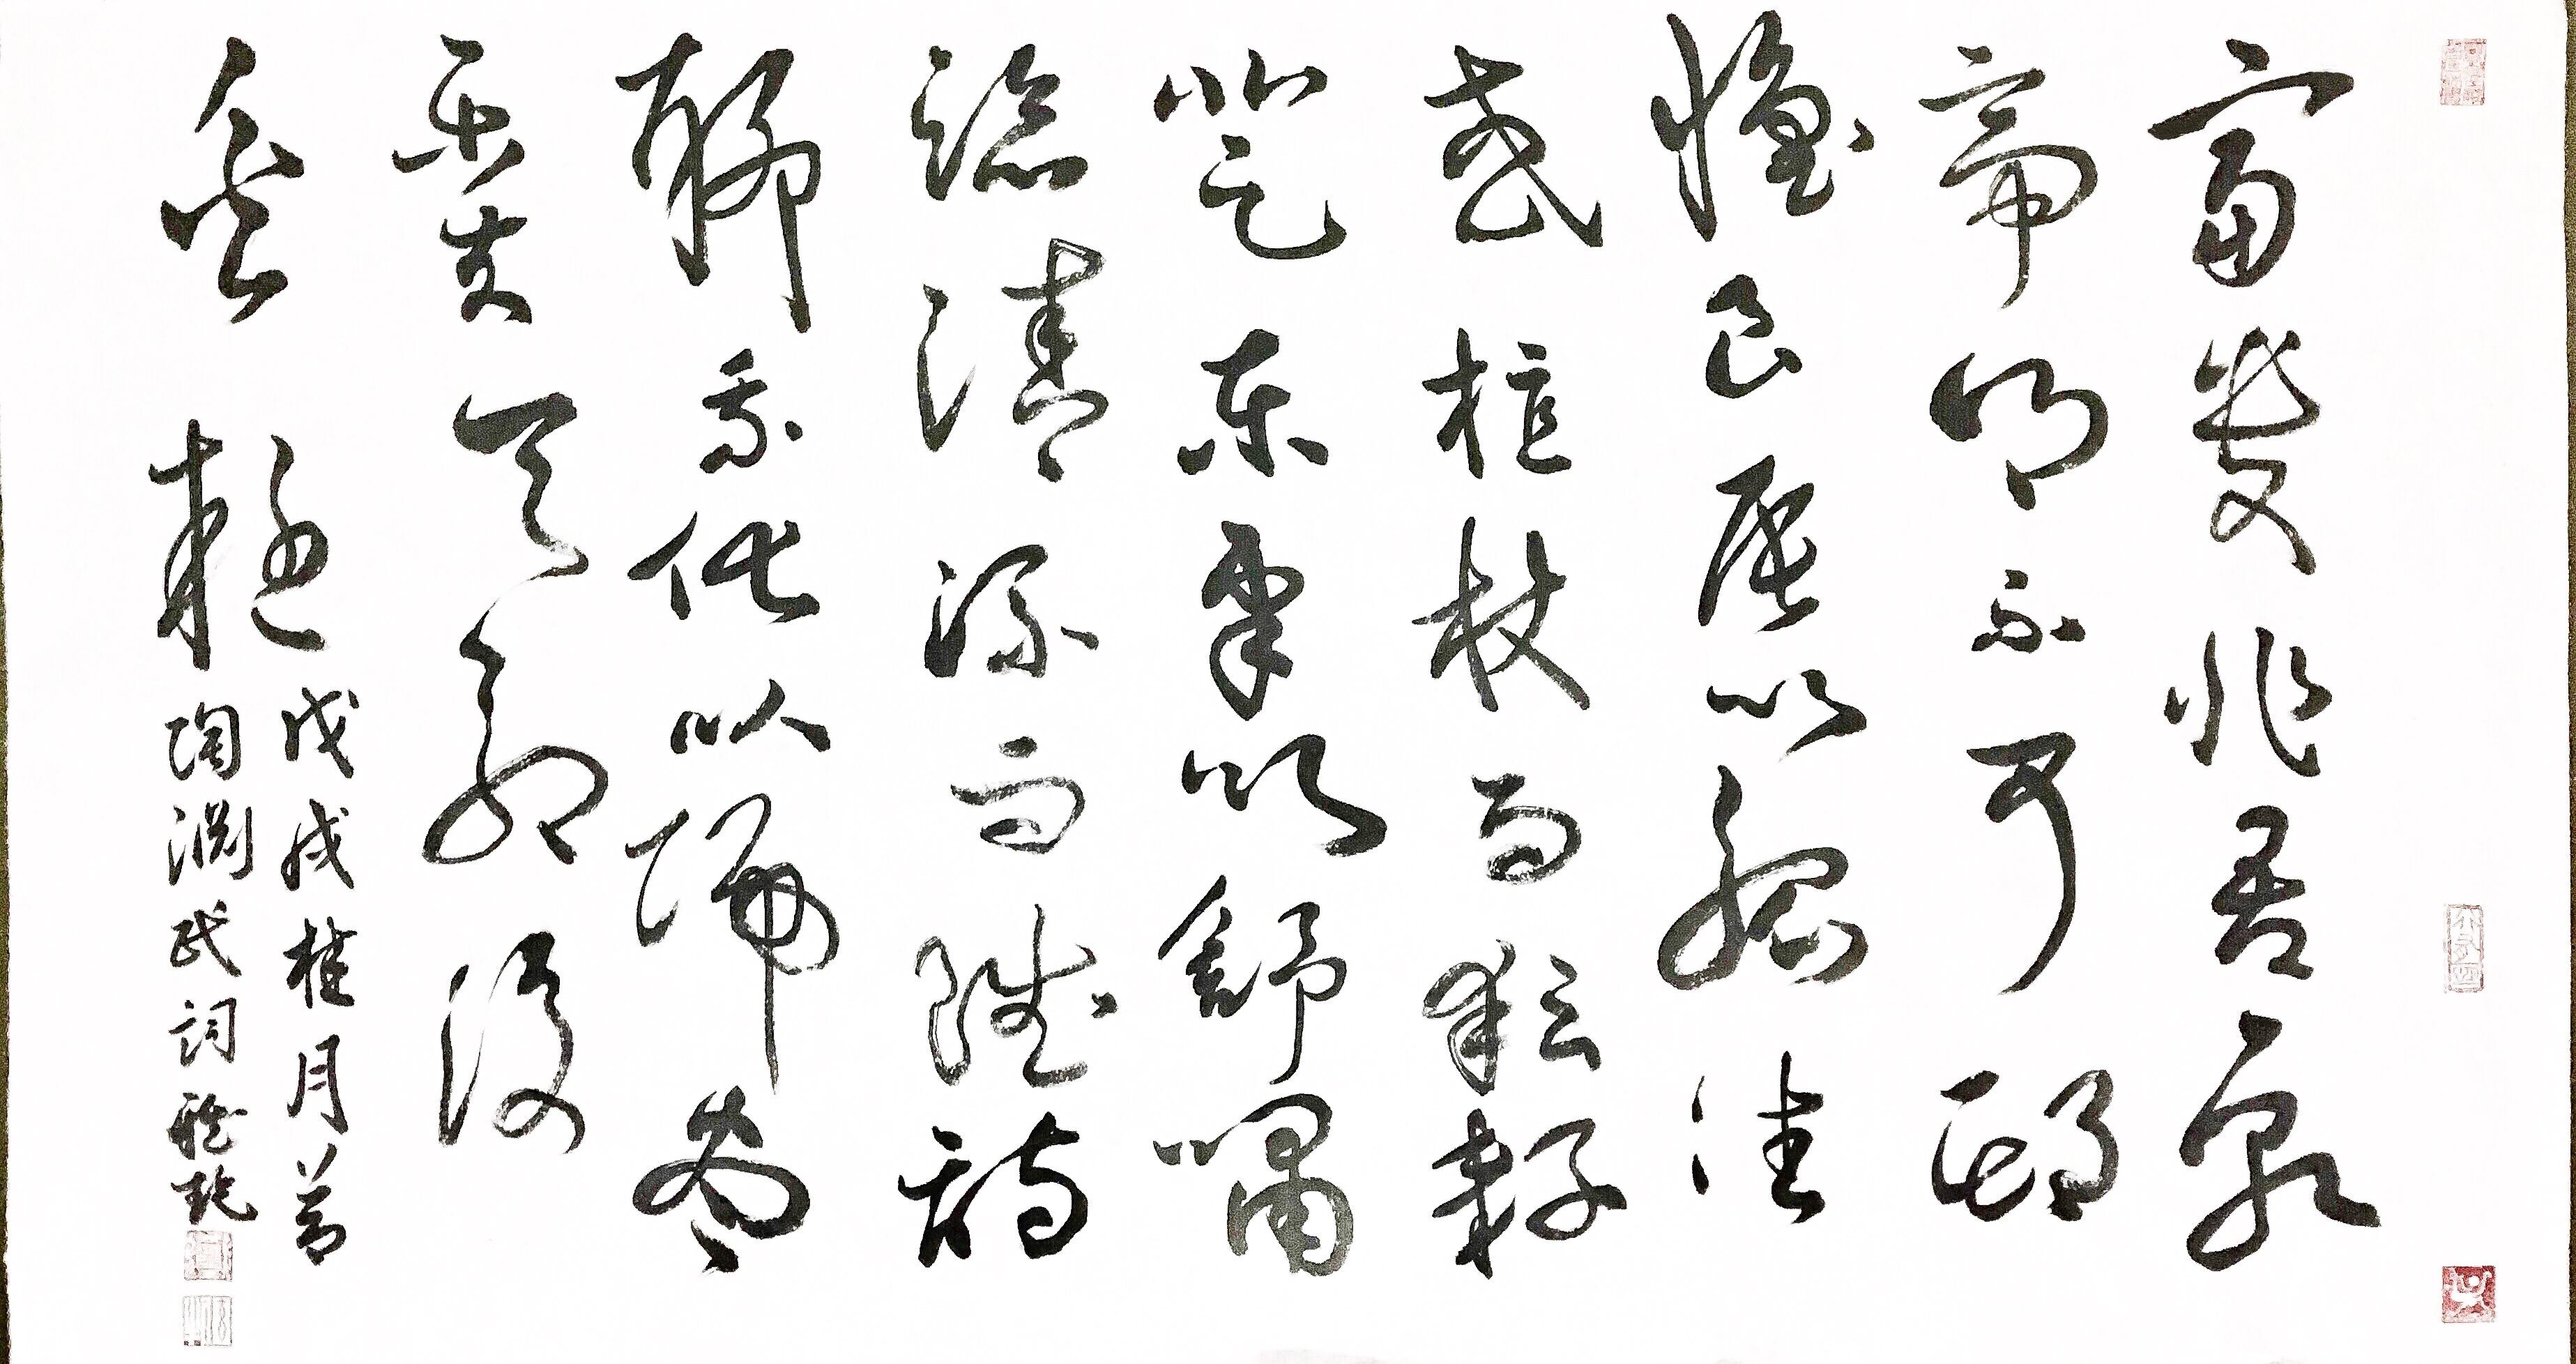 富貴非吾願
帝鄉不可期
懷良辰以孤往
或植杖而耘耔
登東皋以舒嘯
臨清流而賦詩
聊乘化以歸盡
樂夫天命復
奚疑
戊戌桂月
陶淵氏詞